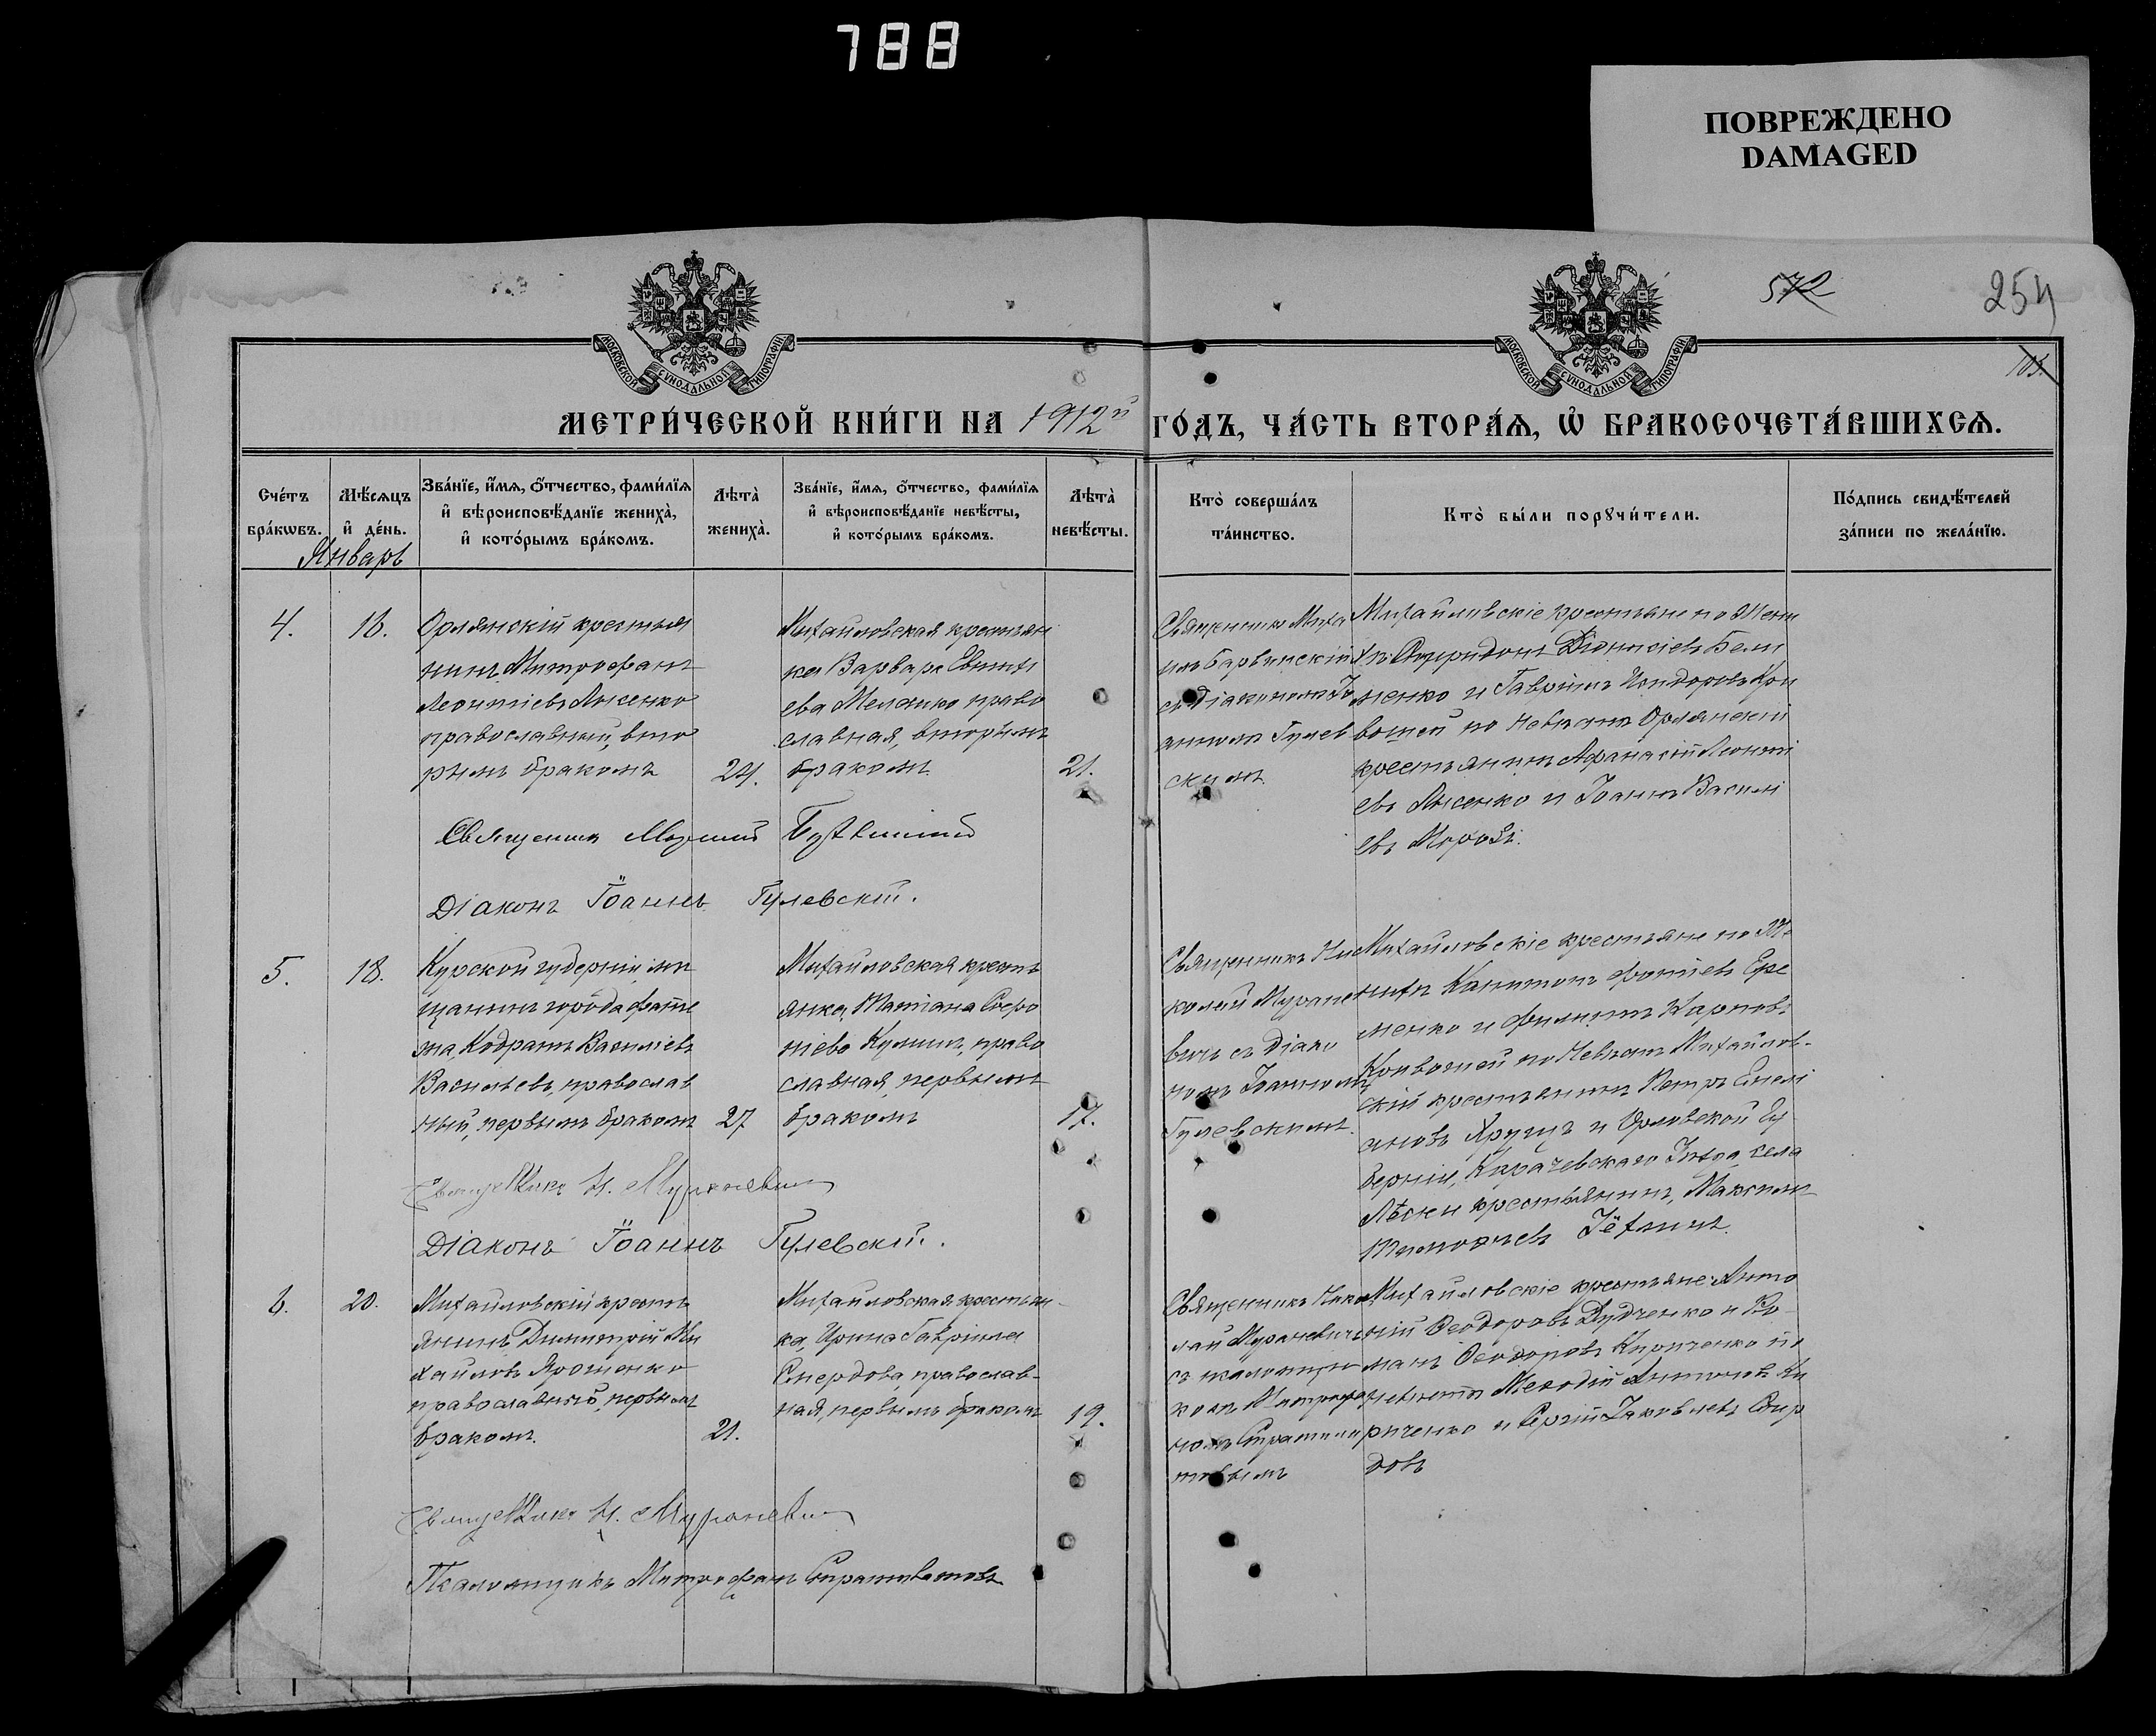 788
ПОВРЕЖДЕНО
DAMAGED
572
254
103.
МОСКОВСКОЙ СУНОДАЛЬНОЙ ТИПОГРАФІИ
МОСКОВСКОЙ СУНОДАЛЬНОЙ ТИПОГРАФІИ
МЕТРИ́ЧЕСКОЙ КНИ́ГИ НА 1912й ГО́ДЪ, ЧА́СТЬ ВТОРА́Я, Ѽ БРАКОСОЧЕТА́ВШИХСЯ.
Сче́тъ
бра́кѡвъ.
Мѣ́сяцъ
и҆ де́нь.
Январь
Зва́нїе, и҆́мя, ѻ҆́тчество, фами́лїя
и҆ вѣроисповѣ́данїе жениха̀,
и҆ кото́рымъ бра́комъ.
Лѣта̀
жениха̀.
Зва́нїе, и҆́мя, ѻ҆́тчество, фами́лїя
и҆ вѣроисповѣ́данїе невѣ́сты,
и҆ кото́рымъ бра́комъ.
Лѣта̀
невѣ́сты.
Кто̀ соверша́лъ
та́инство.
Кто̀ бы́ли порꙋчи́тели.
По́дпись свидѣ́телей
за́писи по жела́нїю.
4.
16.
Орлянскій крестья
нинъ Митрофанъ
Леонтіевъ Лисенко
православный, вто
рымъ бракомъ
24.
Михайловская крестьян
ка Варвара Евтих
ева Меленко право
славная, вторымъ
бракомъ
21.
Священникъ Миха
илъ Барвинскій
съ Діакономъ Іо
анномъ Гулев
скимъ.
Михайловскіе крестьяне по Жени
хѣ: Спиридонъ Діонисіевъ Бели
ченко и Гавріилъ Исидоровъ Кри
вошей по Невѣстѣ Орлянскій
крестьянинъ Афанасій Леонті
евъ Лисенко и Іоаннъ Василі
евъ Морозъ.
Священникъ
Діаконъ Іоаннъ Гулевскій.
5.
18.
Курской губерніи мѣ
щанинъ города Фате
жа, Кодратъ Василіевъ
Васильевъ, православ
ный, первымъ бракомъ
27
Михайловская кресть
янка, Татіана Софро
ніева Кулишъ, право
славная, первымъ
бракомъ
17.
Священникъ Ни
колай Муране
вичъ съ Діако
номъ Іоанномъ
Гулевскимъ.
Михайловскіе крестьяне по Же
нихѣ Капитонъ Фотіевъ Ере
менко и Филиппъ Карповъ
Кривошей по Невѣстѣ Михайлов-
скій крестьянинъ Петръ Емелі
ановъ и Орловской Гу
берніи, Карачевскаго Уѣзда, села
Лѣски крестьянинъ, Максимъ
Священникъ Н. Мураневичъ
Діаконъ Іоаннъ Гулевскій.
6.
20.
Михайловскій кресть
янинъ, Димитрій Ми
хайловъ Ярошенко
православный, первымъ
бракомъ.
21.
Михайловская крестьян-
ка, Ирина Гавріила
Смердова, православ-
ная, первымъ бракомъ
19.
Священникъ Нико
лай Мураневичъ
съ псаломщи
комъ Митрофа
номъ Стратила
товымъ
Михайловскіе крестьяне: Анто
ній Ѳеодоровъ Дудченко и Ро-
манъ Ѳеодоровъ Кириченко по
невѣстѣ Меѳодій Антоновъ Ки
риченко и Сергій Іаковлевъ Смер
довъ
Священникъ Н. Мураневичъ
Псаломщикъ Митрофанъ Стратилатовъ